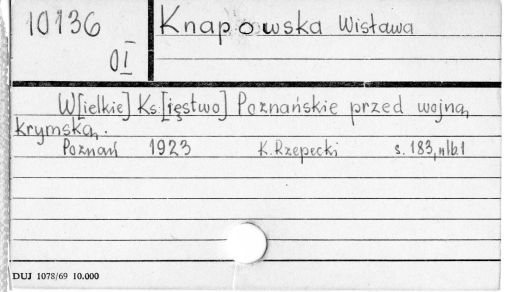 10136
OI
Knapowska Wisława
W[ielkie] Ks.[ięstwo] Poznańskie przed wojną
krymską.
Poznań 1923 K.Rzepecki s. 183, nlb.1
DUJ 1078/69 10.000